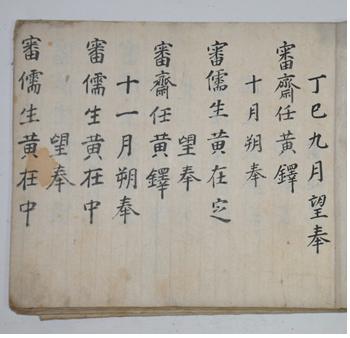 丁巳九月望奉
審齋任黃鐸
十月朔奉
審儒生黃在定
望奉
審齋任黃鐸
十一月朔奉
審儒生黃在中
望奉
審儒生黃在中